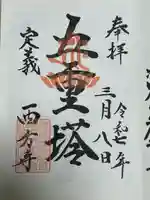 奉拝
令和七年
三月八日
五重塔
定義
西方寺